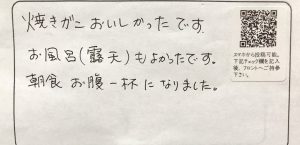 焼きガニおいしかったです.
お風呂(露天)もよかったです。
朝食 お腹一杯になりました。
スマホから投稿可能。
下記チェック欄を記入
後、フロントへご持参
下さい。